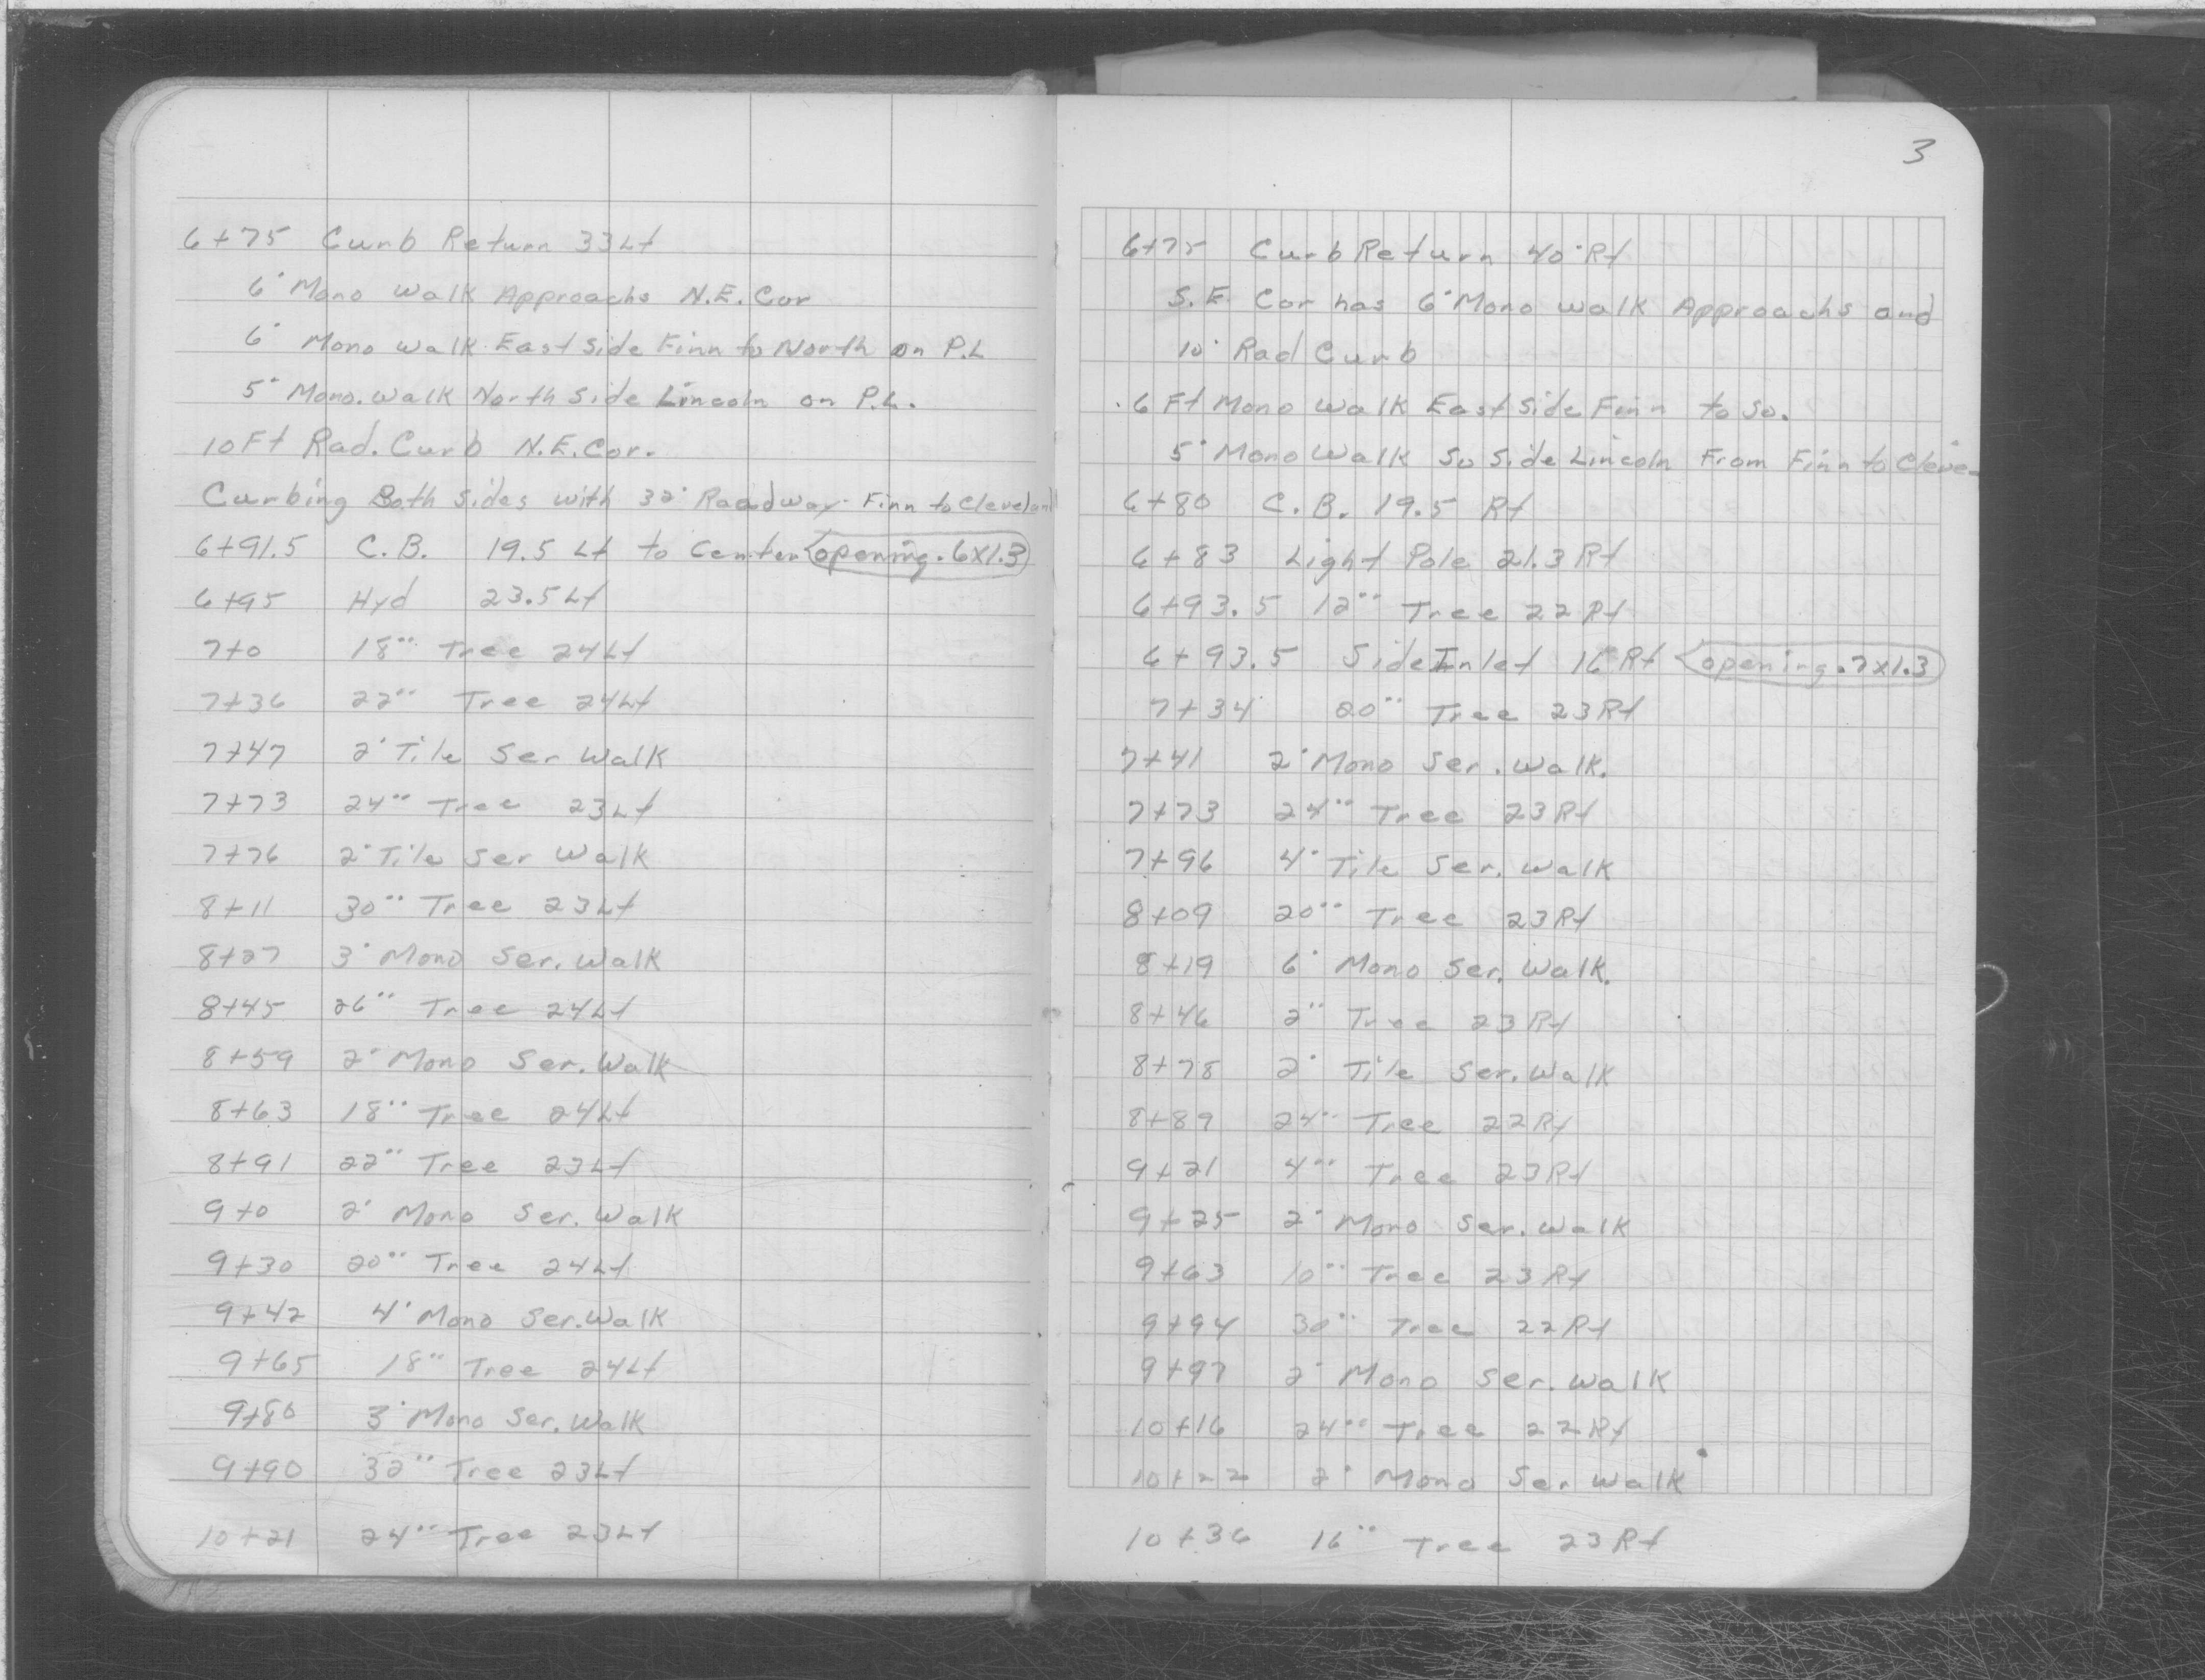 6+75 Curb Return 33Lt
6' Mono Walk Approachs N.E. Cor
6' Mono Walk East Side Finn to North on P.L
5' Mono. Walk North Side Lincoln on P.L.
10Ft Rad. Curb N.E. Cor.
Curbing Both Sides with 32' Roadway Finn to Cleveland
6+91.5 C.B. 19.5 Lt to Center opening .6x1.3
6+95 Hyd 23.5Lt
7+0 18" Tree 24Lt
7+36 22" Tree 24Lt
7+47 2' Tile Ser Walk
7+73 24" Tree 23Lt
7+76 2' Tile Ser Walk
8+11 30" Tree 23Lt
8+27 3' Mono Ser. Walk
8+45 26" Tree 24Lt
8+59 2' Mono Ser. Walk
8+63 18" Tree 24Lt
8+91 22" Tree 23Lt
9+0 2' Mono Ser. Walk
9+30 20" Tree 24Lt
9+42 4' Mono Ser. Walk
9+65 18" Tree 24Lt
9+80 3' Mono Ser. Walk
9+90 32" Tree 23Lt
10+21 24" Tree 23Lt
3
6+75 Curb Return 40'Rt
S.E Cor has 6' Mono Walk Approachs and
10' Rad Curb
6 Ft Mono Walk East Side Finn to So.
5' Mono Walk So Side Lincoln From Finn to Cleve-
6+80 C.B. 19.5 Rt
6+83 Light Pole 21.3 Rt
6+93.5 12" Tree 22 Rt
6+93.5 Side Inlet 16 Rt opening .7x1.3
7+34 20" Tree 23Rt
7+41 2' Mono Ser. Walk.
7+73 24" Tree 23Rt
7+96 4' Tile Ser. Walk
8+09 20" Tree 23Rt
8+19 6' Mono Ser. Walk.
8+46 2" Tree 23Rt
8+78 2' Tile Ser. Walk
8+89 24" Tree 22Rt
9+21 4" Tree 23Rt
9+25 2' Mono Ser. Walk
9+63 10" Tree 23Rt
9+94 30" Tree 22Rt
9+97 2' Mono Ser. Walk
10+16 24" Tree 22Rt
10+22 2' Mono Ser Walk
10+36 16" Tree 23Rt